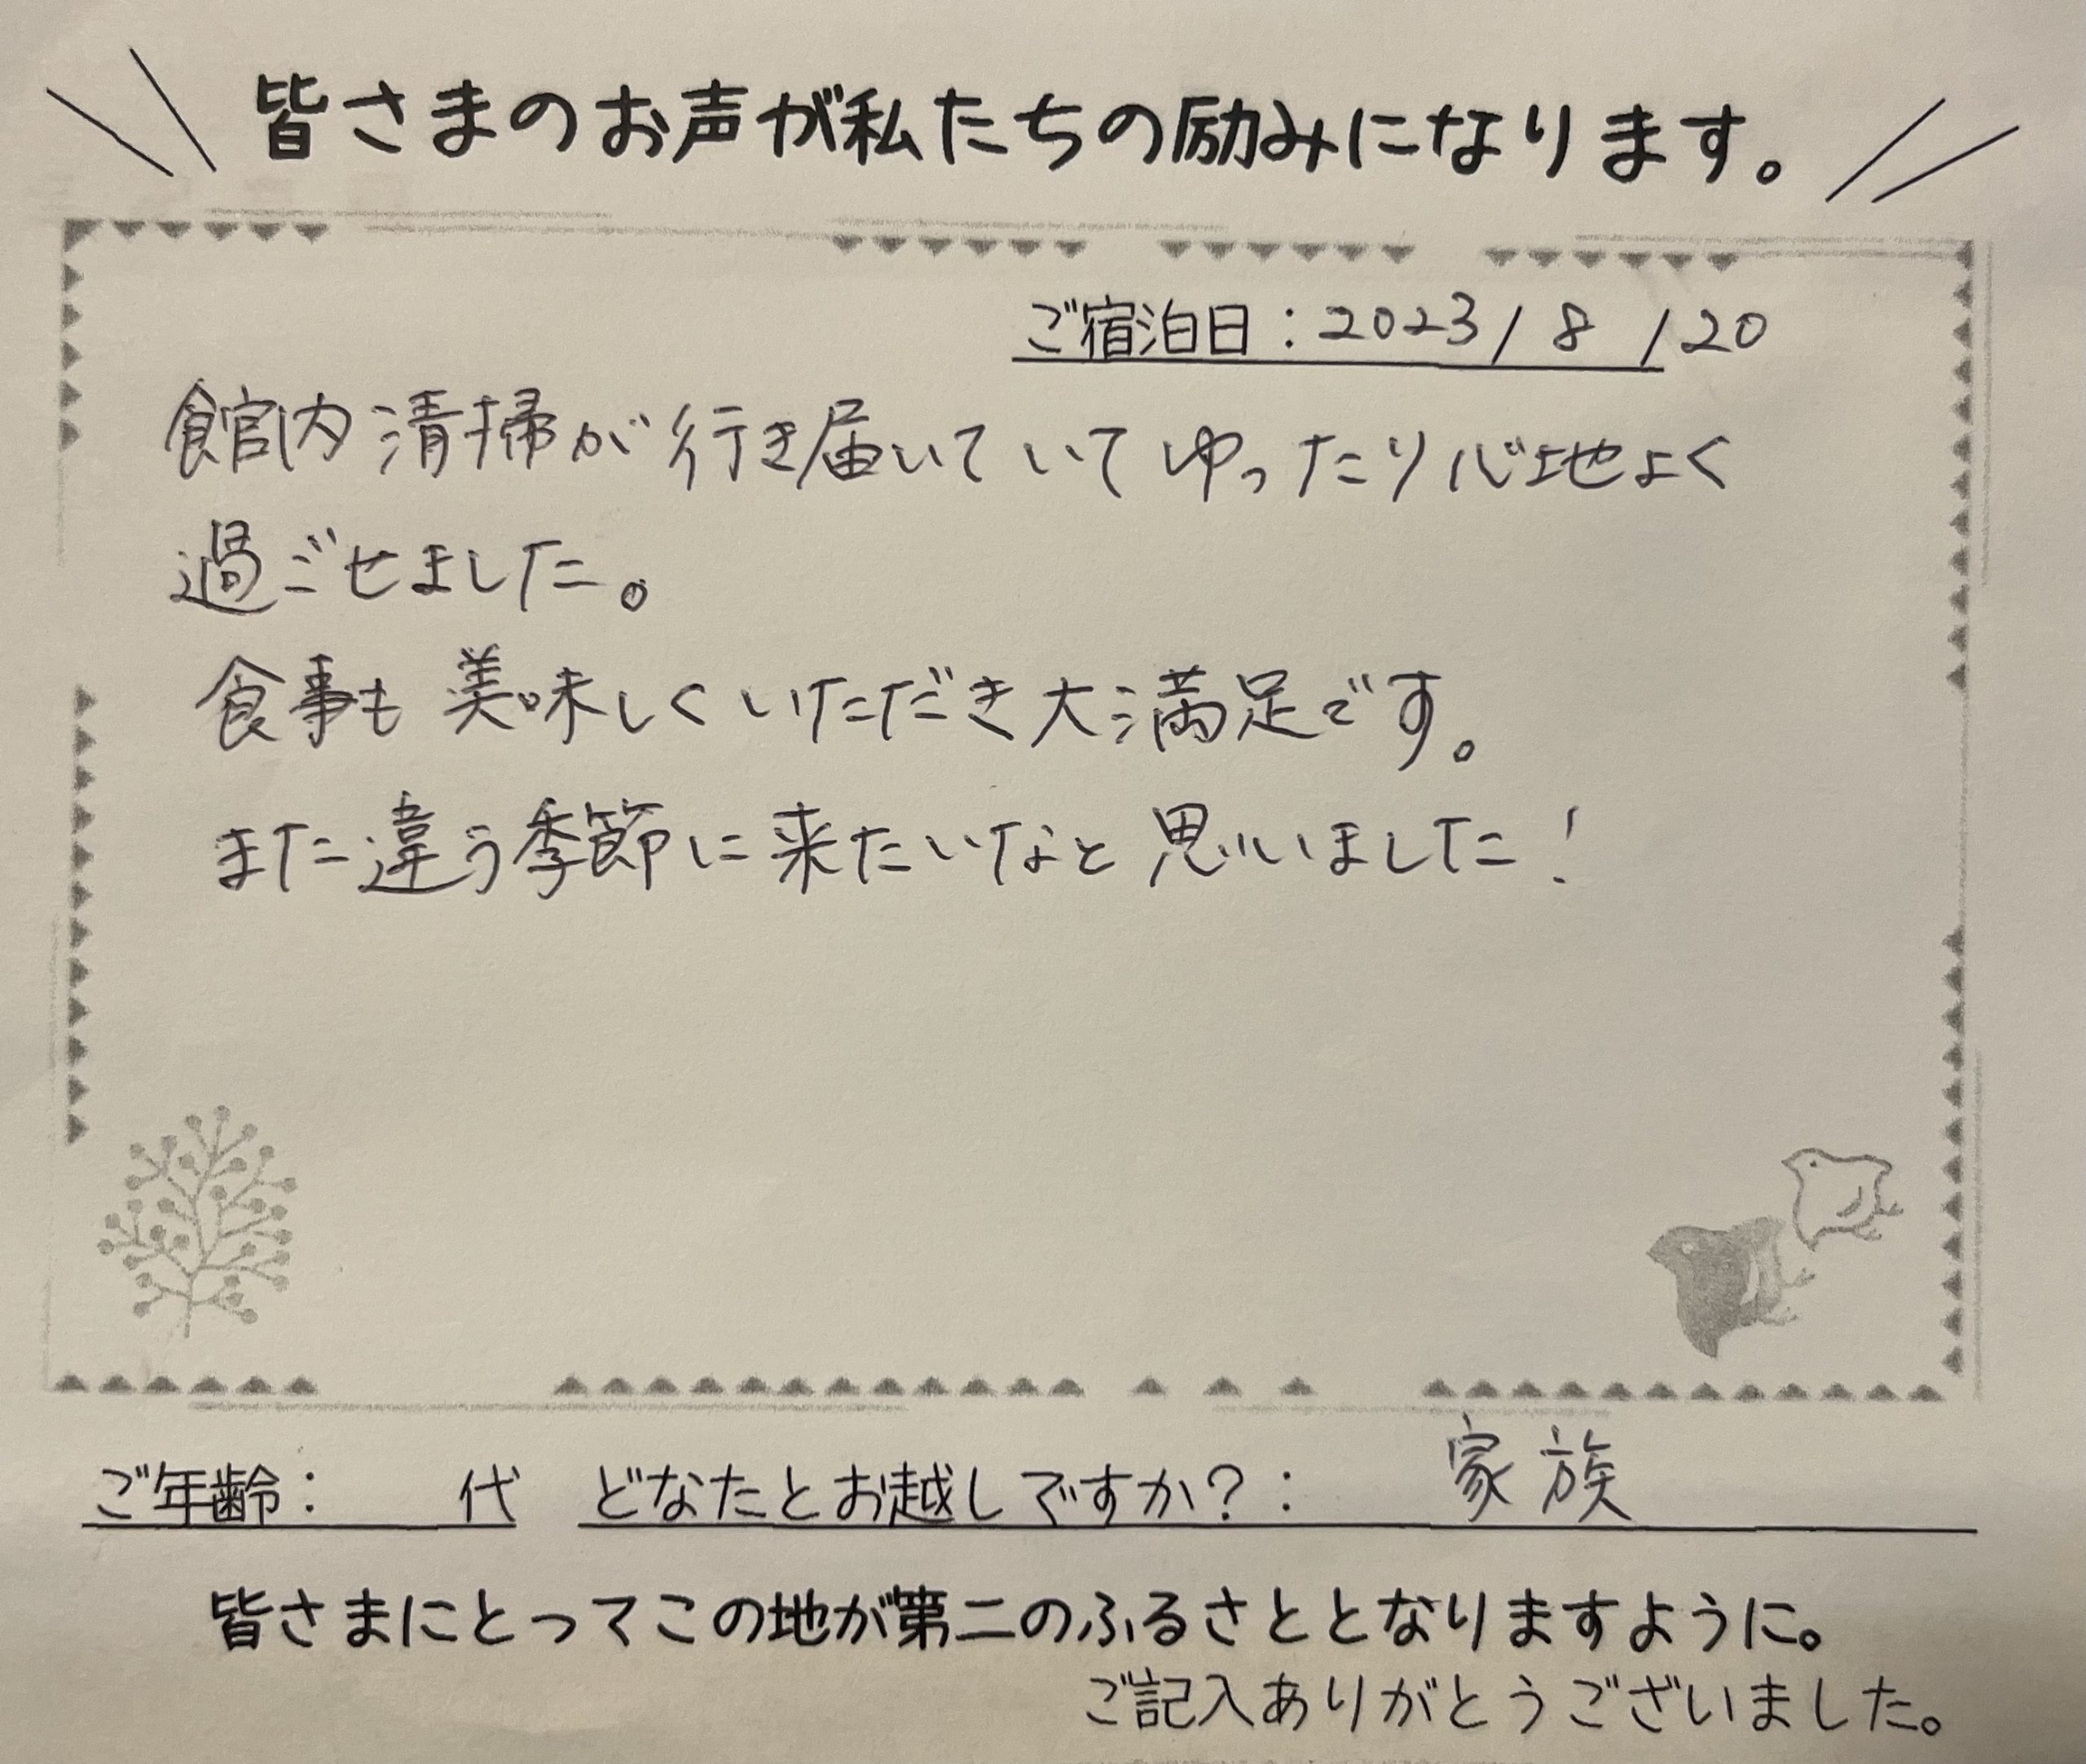 皆さまのお声が私たちの励みになります。
ご宿泊日：2023/8/20
館内清掃が行き届いていてゆったり心地よく
過ごせました。
食事も美味しくいただき大満足です。
また違う季節に来たいなと思いました！
ご年齢：　代　どなたとお越しですか？：　家族
皆さまにとってこの地が第二のふるさととなりますように。
ご記入ありがとうございました。